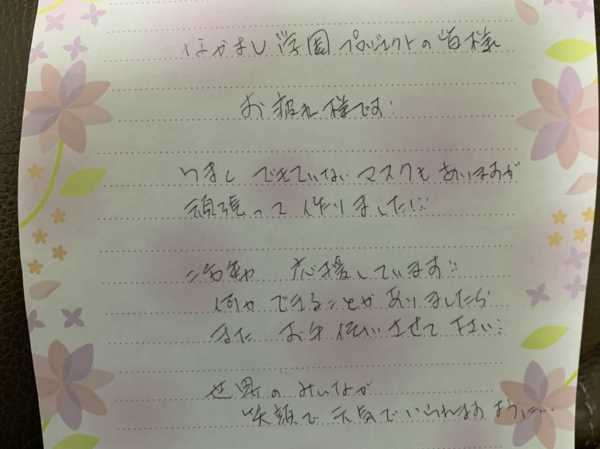 はかまし学園プロジェクトの皆様
お疲れ様です!
できていないマスクもありますが
頑張って作りました!!
応援しています!!
何かできることがありましたら
また お手伝いさせて下さい!
世界のみんなが
笑顔で元気でいられますように…